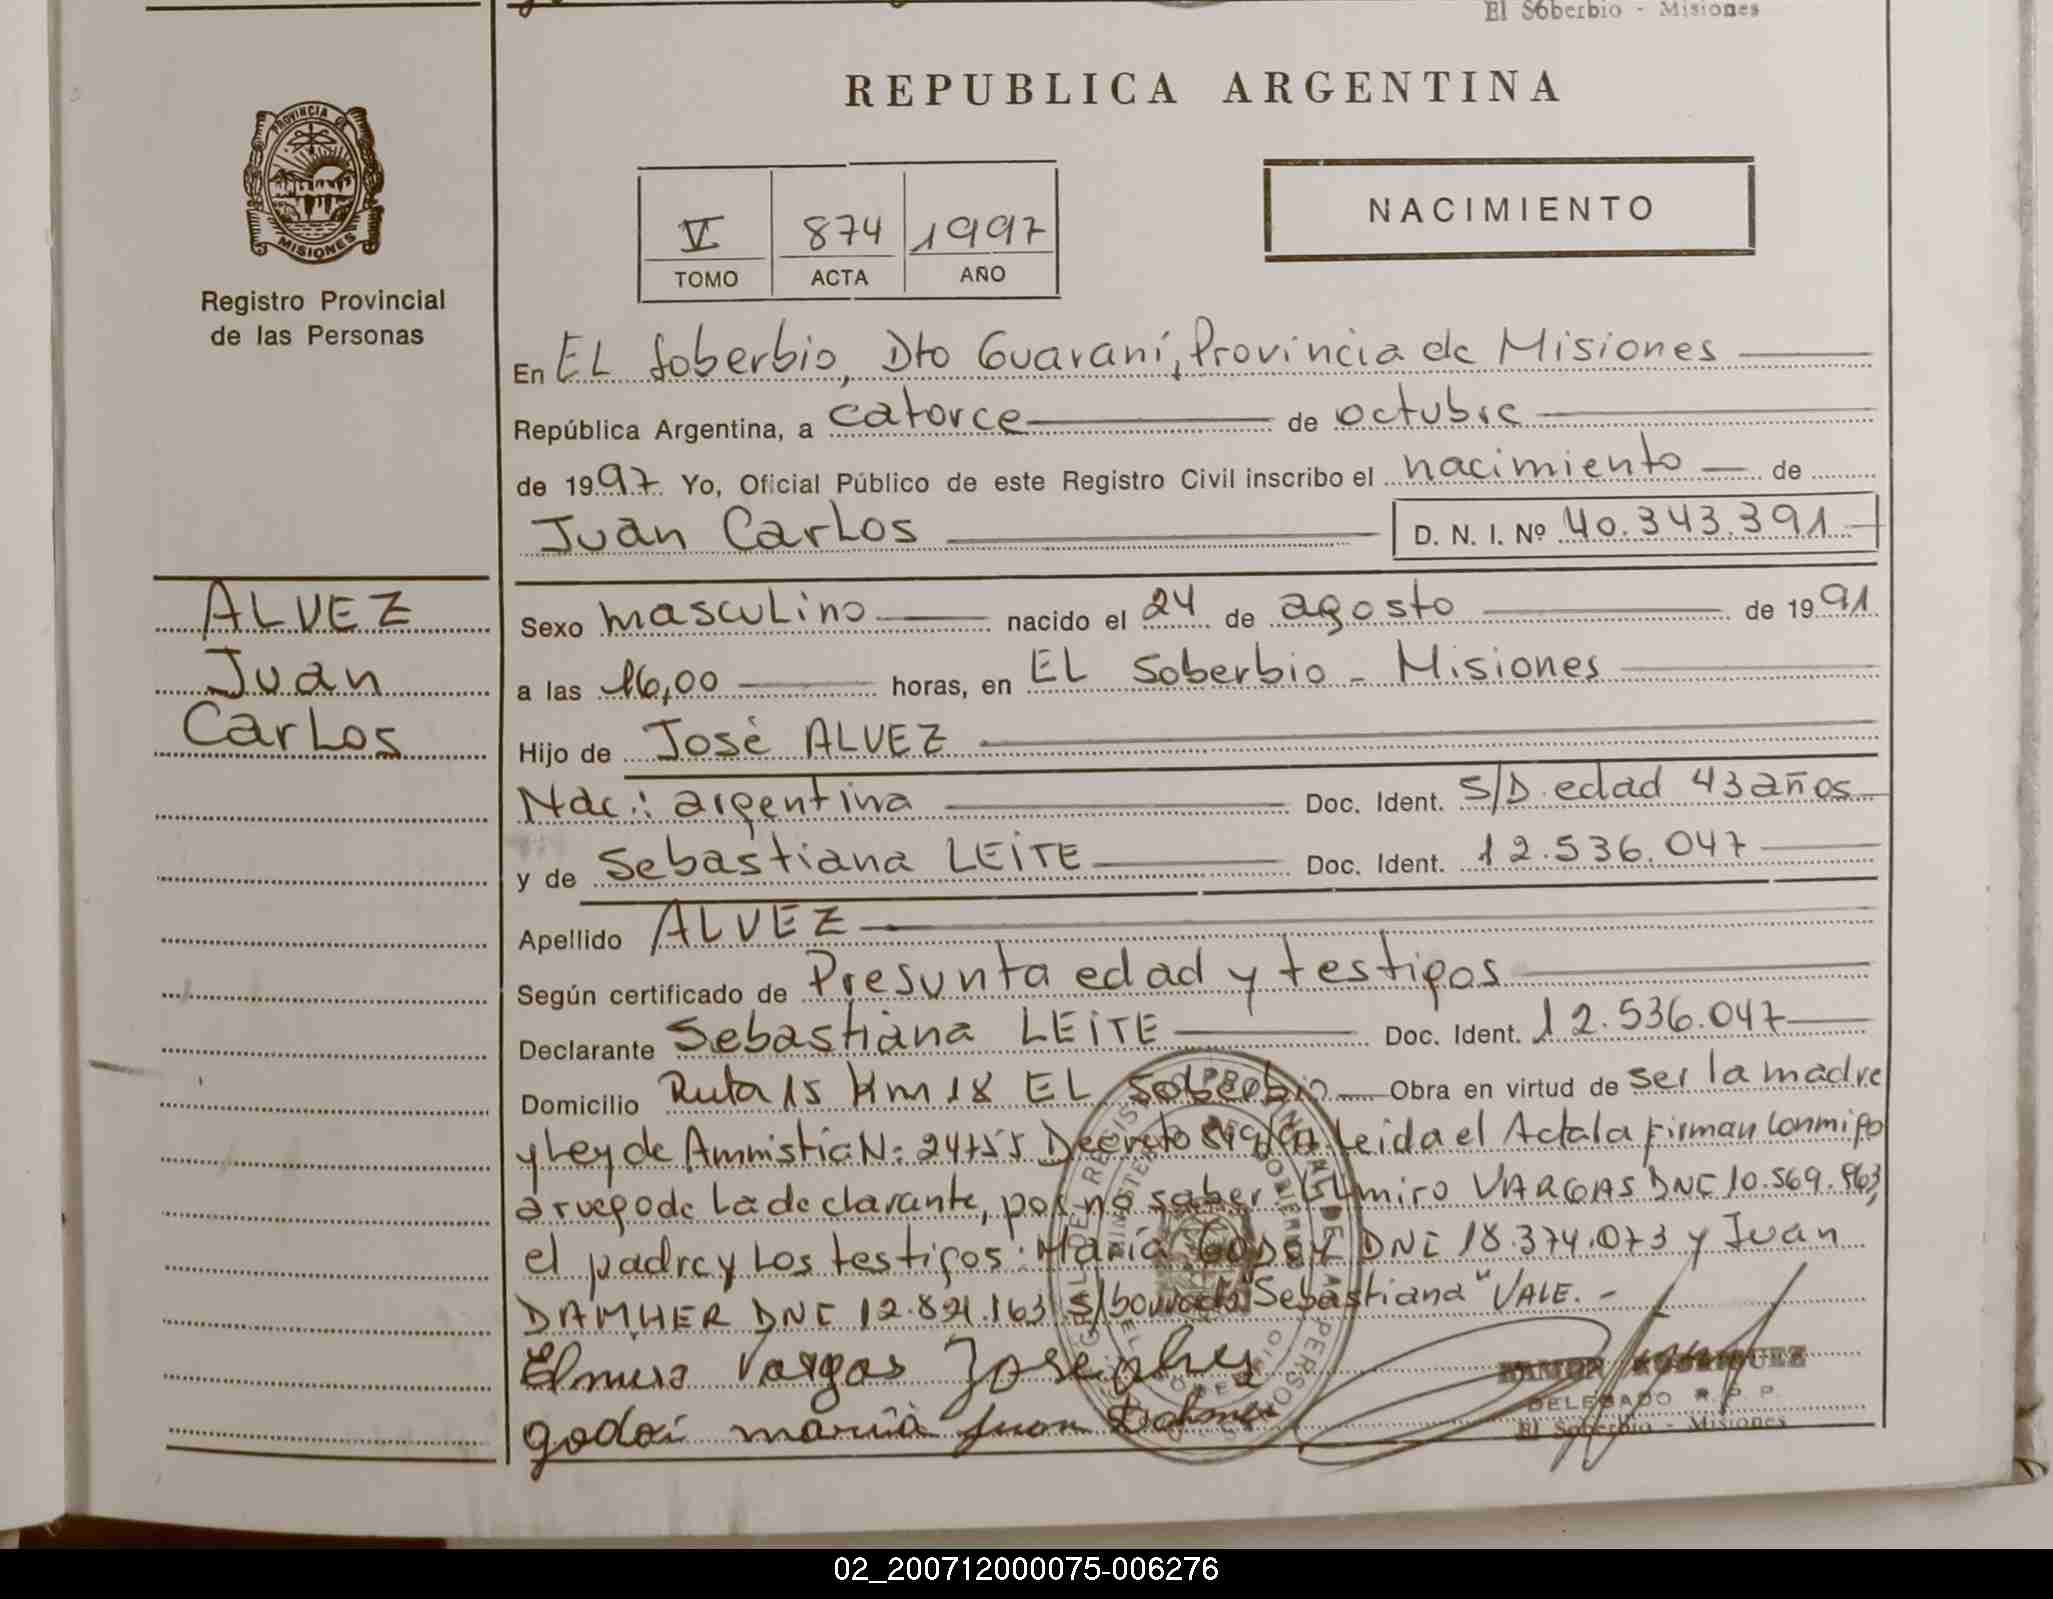 El Soberbio - Misiones
REPUBLICA ARGENTINA
PROVINCIA DE
MISIONES
Registro Provincial
de las Personas
V 874 1997
TOMO ACTA AÑO
NACIMIENTO
En EL Soberbio, Dto Guaraní, Provincia de Misiones
República Argentina, a catorce de octubre
de 1997 Yo, Oficial Público de este Registro Civil inscribo el nacimiento de
Juan Carlos D. N. I. Nº 40.343.391
ALVEZ
Juan
Carlos
Sexo masculino nacido el 24 de agosto de 1991
a las 16,00 horas, en EL Soberbio - Misiones
Hijo de José ALVEZ
Nac.: argentina Doc. Ident. S/D. edad 43 años
y de Sebastiana LEITE Doc. Ident. 12.536.047
Apellido ALVEZ
Según certificado de Presunta edad y testigos
Declarante Sebastiana LEITE Doc. Ident. 12.536.047
Domicilio Ruta 15 Km 18 EL Soberbio Obra en virtud de ser la madre
y Ley de Amnistía N: 24755 Decreto Leida el Acta la firman conmigo
a ruego de la declarante, por no saber VARGAS DNI 10.569.
el padre y los testigos: María GODOY DNI 18.374.073 y Juan
DAMHER DNI 12.821.163 S/borrado "Sebastiana" VALE. -
Vargas
godoi maria Juan
RAMON RODRIGUEZ
DELEGADO R. P. P.
El Soberbio - Misiones
02_200712000075-006276